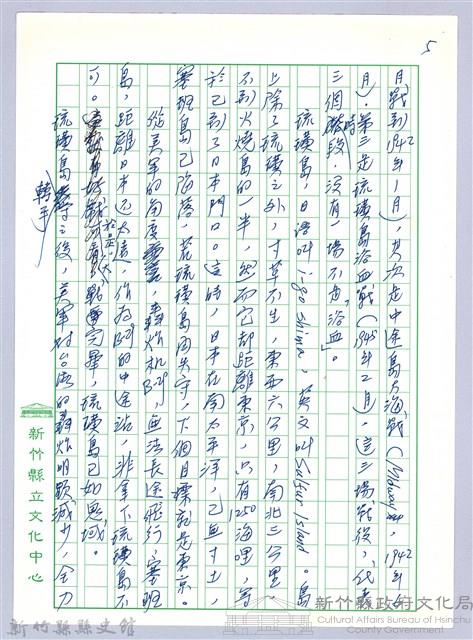 5
月戰到1942年1月),其次走中途島大海戰(Midway,1942年6
月),第三是琉磺島浴血戰(1945年2月,這三場戰役,代表
三個階段時,沒有一場不是「浴血」。
琉磺島,日語叫igo shima,英文叫Sulfur Island。島
上除了琉磺之外,寸草不生,東西六公里,南北三公里,
不到火燒島的一半,然而它却距離東京,只有1250海哩,等
於已到了日本門口。這時,日本在南太平洋,已無寸土,
塞班島已陷落,若琉磺島再失守,下個目標就是東京。
從美軍的角度,轟炸机B29,無法長途飛行,塞班
島,距離日本远太遠,作為B29的中途站,非拿下琉磺島不
可。於是戰完畢,琉磺島已如鬼域。
琉磺島之後,美軍對台灣的轟炸明顯減少,全力
轉手
新竹縣立文化中心
新竹縣縣史館
新竹縣政府文化局
Cultural Affairs Bureau of Hsinchu
County Government